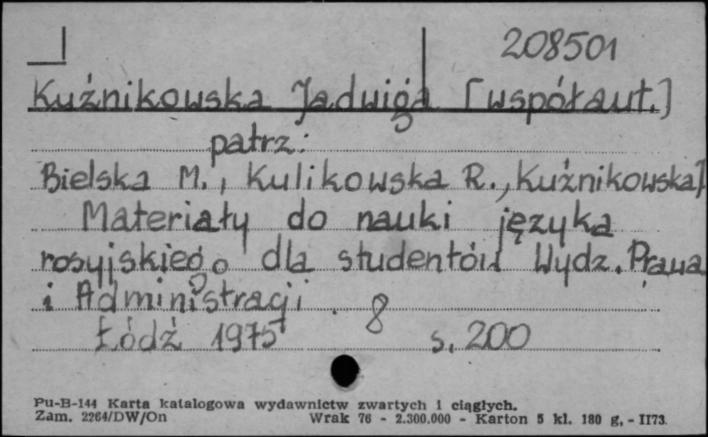 208501
Kuźnikowska Jadwiga [współaut.]
patrz:
Bielska M., Kulikowska R., Kuźnikowska J.
Materiały do nauki języka
rosyjskiego dla studentów Wydz. Prawa
i Administracji. 8
Łódź 1975 s. 200
Pu-B-144 Karta katalogowa wydawnictw zwartych i ciągłych.
Zam. 2264/DW/On Wrak 76 - 2.300.000 - Karton 5 kl. 180 g. - II73.